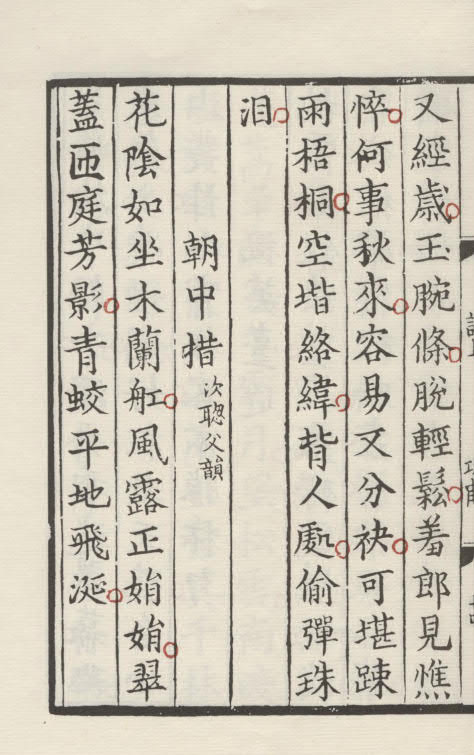 又經歲玉腕條脫輕鬆羞郎見憔
悴何事秋來容易又分袂可堪踈
雨梧桐空堦絡緯背人處偷彈珠
泪
朝中措次聰父韻
花陰如坐木蘭舡風露正娟娟翠
蓋匝庭芳影青蛟平地飛涎